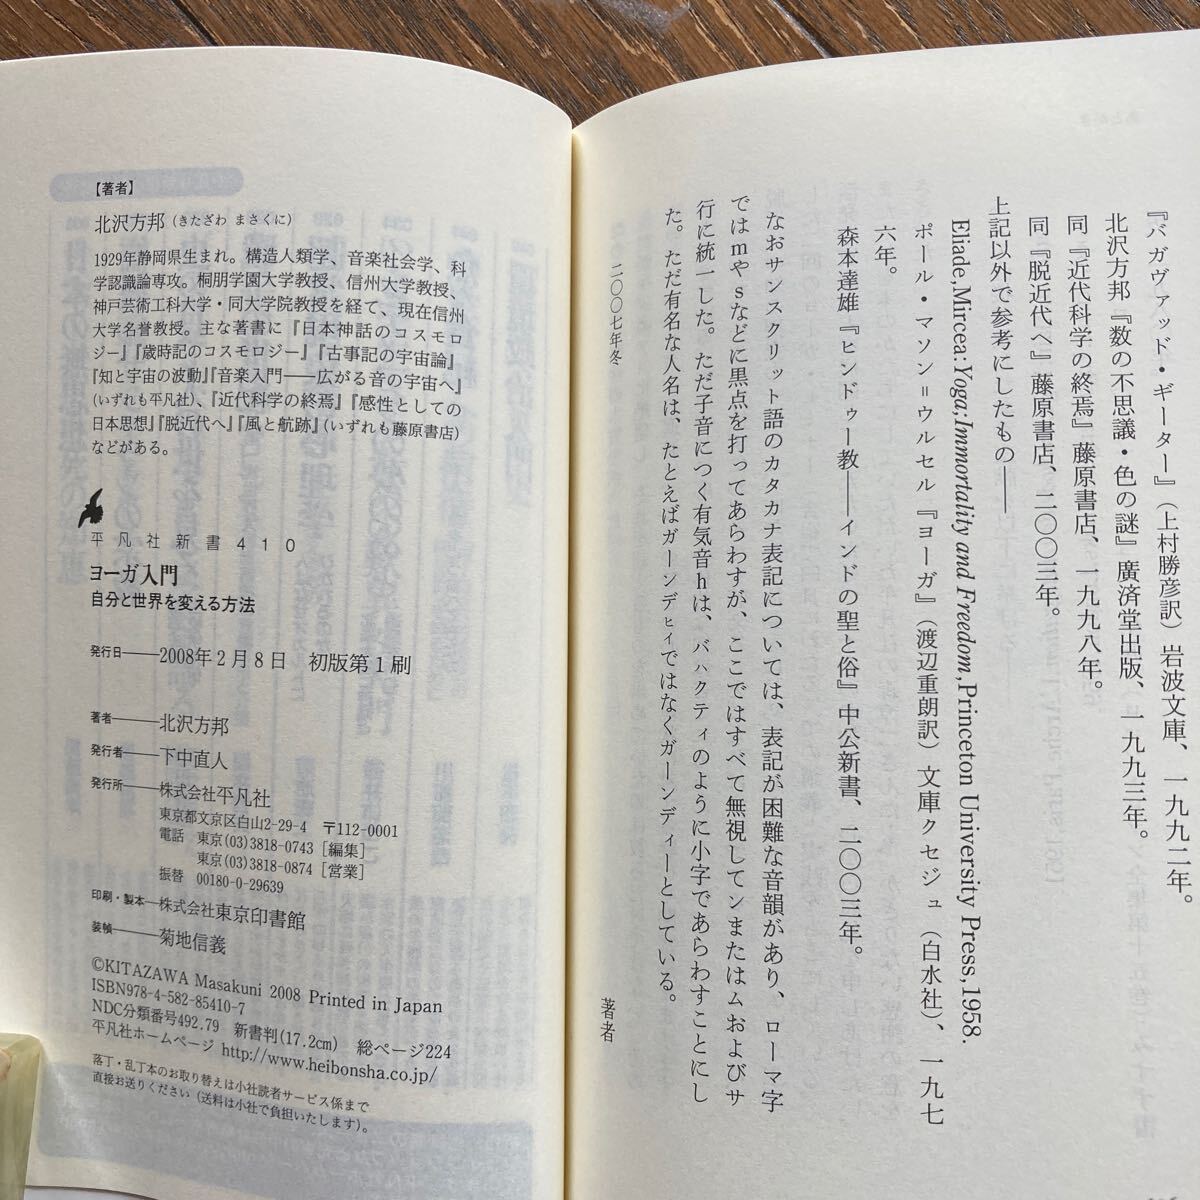 『バガヴァッド・ギーター』（上村勝彦訳）岩波文庫、一九九二年。
北沢方邦『数の不思議・色の謎』廣済堂出版、一九九三年。
同『近代科学の終焉』藤原書店、一九九八年。
同『脱近代へ』藤原書店、二〇〇三年。
上記以外で参考にしたもの――
Eliade,Mircea:Yoga;Immortality and Freedom,Princeton University Press,1958.
ポール・マソン＝ウルセル『ヨーガ』（渡辺重朗訳）文庫クセジュ（白水社）、一九七
六年。
森本達雄『ヒンドゥー教――インドの聖と俗』中公新書、二〇〇三年。
なおサンスクリット語のカタカナ表記については、表記が困難な音韻があり、ローマ字
ではmやsなどに黒点を打ってあらわすが、ここではすべて無視してンまたはムおよびサ
行に統一した。ただ子音につく有気音hは、バㇵクティのように小字であらわすことにし
た。ただ有名な人名は、たとえばガーンデㇶィではなくガーンディーとしている。
二〇〇七年冬
著者
【著者】
北沢方邦（きたざわ まさくに）
1929年静岡県生まれ。構造人類学、音楽社会学、科
学認識論専攻。桐朋学園大学教授、信州大学教授、
神戸芸術工科大学・同大学院教授を経て、現在信州
大学名誉教授。主な著書に『日本神話のコスモロ
ジー』『歳時記のコスモロジー』『古事記の宇宙論』
『知と宇宙の波動』『音楽入門――広がる音の宇宙へ』
（いずれも平凡社）、『近代科学の終焉』『感性としての
日本思想』『脱近代へ』『風と航跡』（いずれも藤原書店）
などがある。
平凡社新書410
ヨーガ入門
自分と世界を変える方法
発行日――2008年2月8日　初版第1刷
著者――北沢方邦
発行者――下中直人
発行所――株式会社平凡社
東京都文京区白山2-29-4　〒112-0001
電話　東京(03)3818-0743［編集］
東京(03)3818-0874［営業］
振替　00180-0-29639
印刷・製本―株式会社東京印書館
装幀――菊地信義
©KITAZAWA Masakuni 2008 Printed in Japan
ISBN978-4-582-85410-7
NDC分類番号492.79　新書判(17.2cm)　総ページ224
平凡社ホームページ http://www.heibonsha.co.jp/
落丁・乱丁本のお取り替えは小社読者サービス係まで
直接お送りください（送料は小社で負担いたします）。